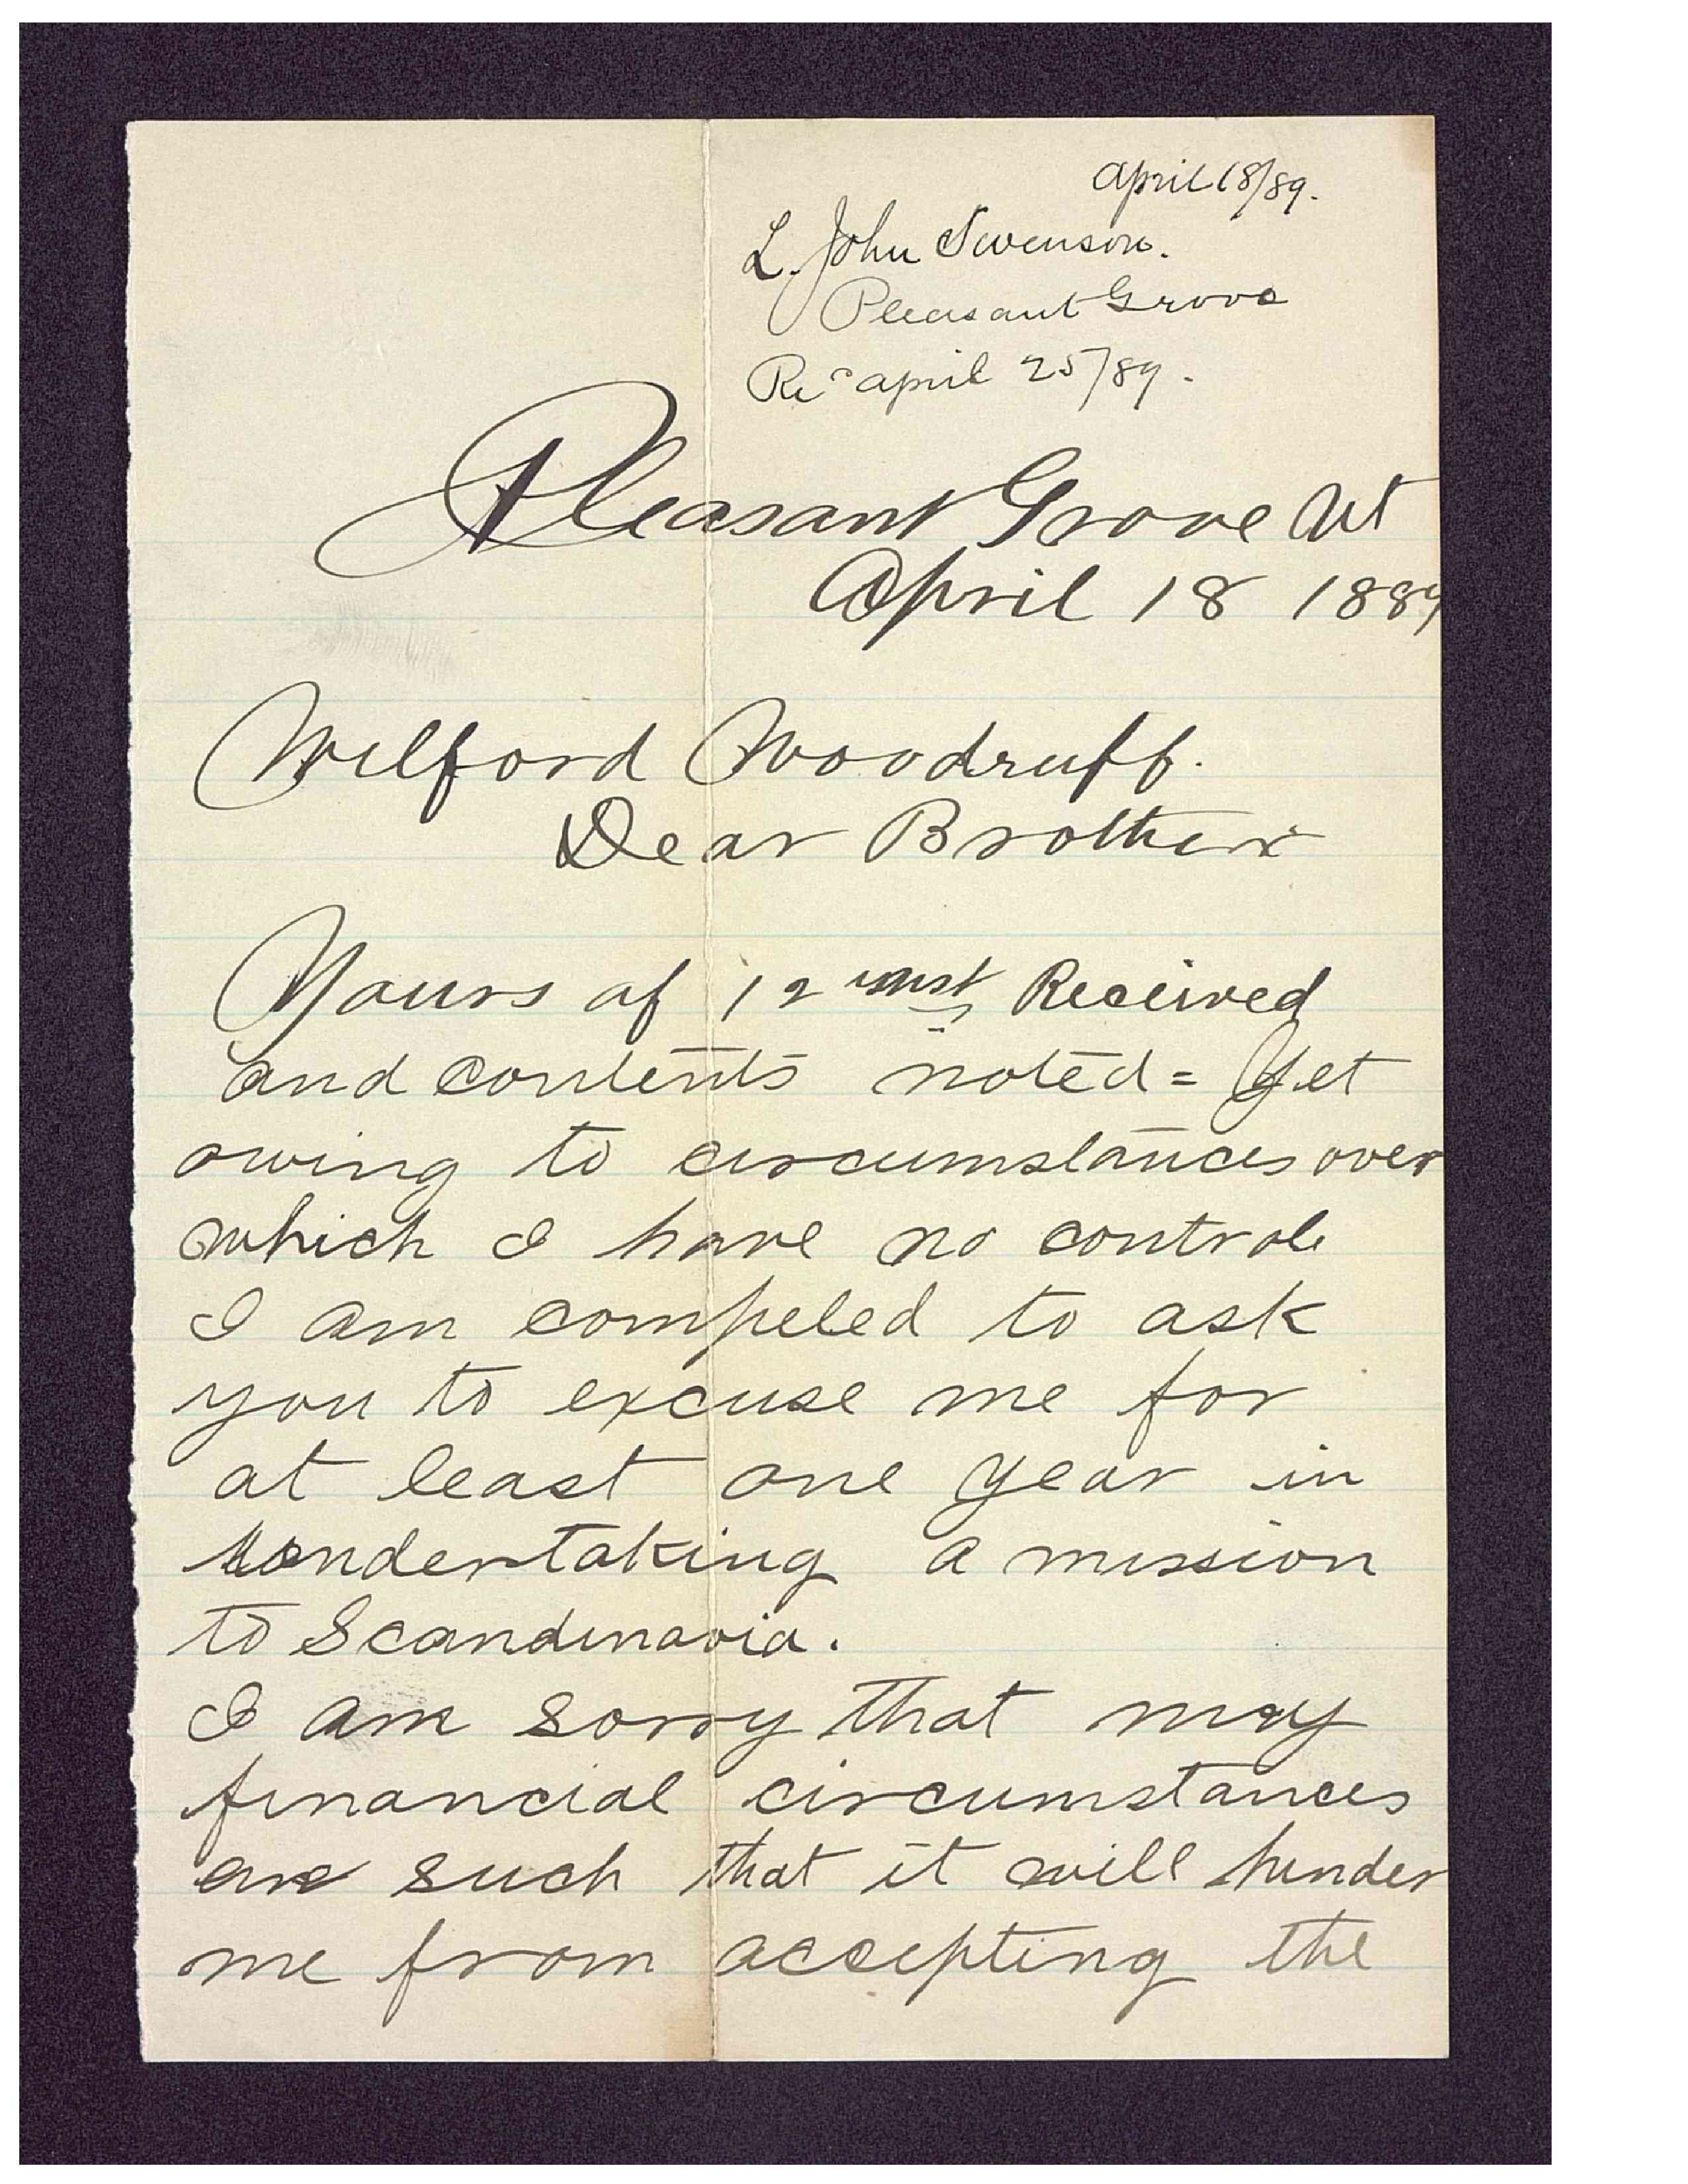 April 18/89.
L. John Swenson.
Pleasant Grove
Rec April 25/89.
Pleasant Grove Ut
April 18 1889
Wilford Woodruff.
Dear Brother
Yours of 12 inst Received
and contents noted = Yet
owing to circumstances over
which I have no controle
I am compeled to ask
you to excuse me for
at least one year in
undertaking a mission
to Scandinavia.
I am sorry that my
financial circumstances
are such that it will hinder
me from accepting the